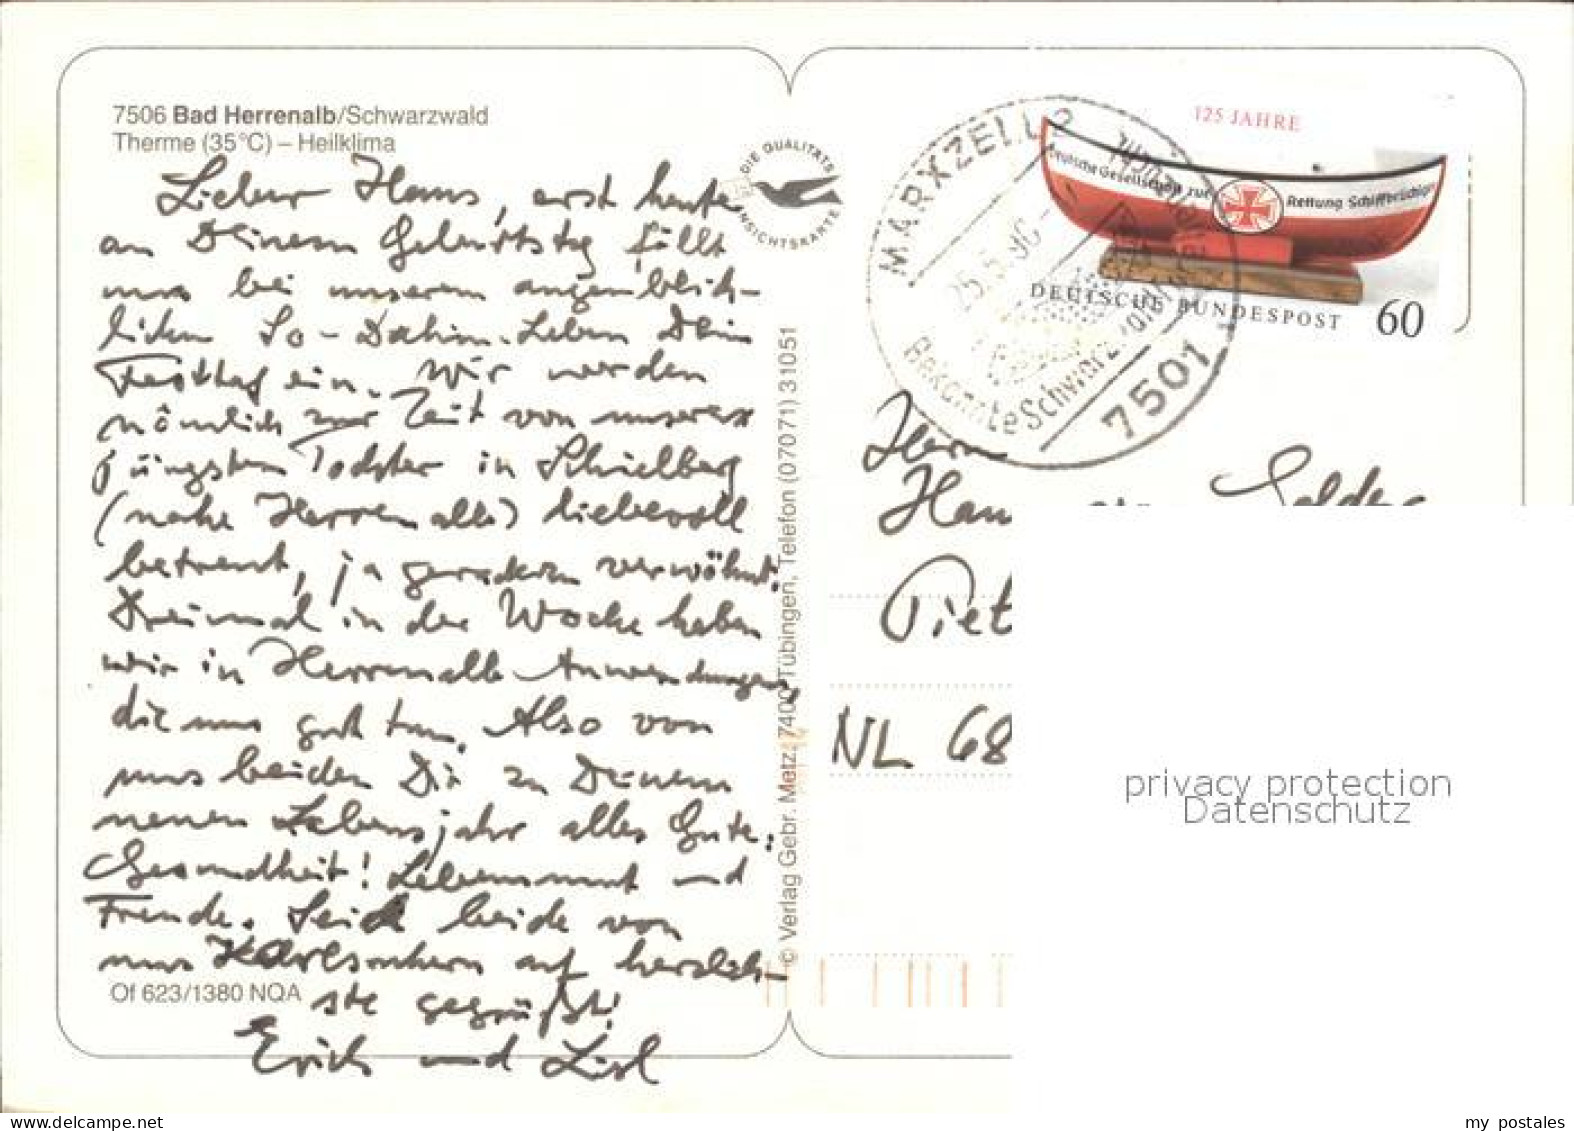 7506 Bad Herrenalb/Schwarzwald
Therme (35°C) – Heilklima
Lieber Hans, erst heute
an Deinem Geburtstag fällt
uns bei unserem augenblick-
lichen So-Dahin-Leben Dein
Festtag ein. Wir werden
nämlich zur Zeit von unserer
jüngsten Tochter in Schielberg
(nahe Herrenalb) liebevoll
betreut, ja geradezu verwöhnt.
Dreimal in der Woche haben
wir in Herrenalb Anwendungen,
die uns gut tun. Also von
uns beiden Dir zu Deinem
neuen Lebensjahr alles Gute:
Gesundheit! Lebensmut und
Freude. Seid beide von
uns auf herzlich-
ste gegrüßt!
Erich und Lisl
Of 623/1380 NQA
DIE QUALITÄTS
ANSICHTSKARTE
© Verlag Gebr. Metz, 7400 Tübingen, Telefon (07071) 31051
MARXZELL 2
25.5.90
Bekannte Schwarzwald
7501
125 JAHRE
Deutsche Gesellschaft zur Rettung Schiffbrüchiger
DEUTSCHE BUNDESPOST 60
Herrn
Piet
NL 68
privacy protection
Datenschutz
my postales